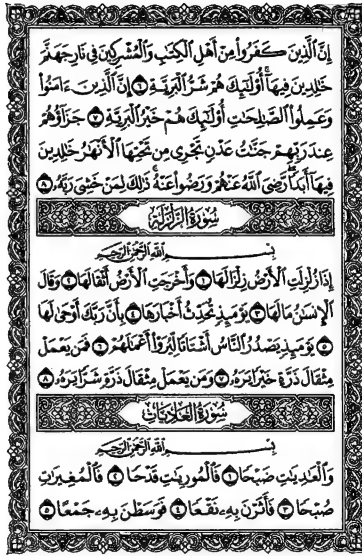 إِنَّ ٱلَّذِينَ كَفَرُواْ مِنۡ أَهۡلِ ٱلۡكِتَٰبِ وَٱلۡمُشۡرِكِينَ فِي نَارِ جَهَنَّمَ
خَٰلِدِينَ فِيهَآۚ أُوْلَٰٓئِكَ هُمۡ شَرُّ ٱلۡبَرِيَّةِ ٦ إِنَّ ٱلَّذِينَ ءَامَنُواْ
وَعَمِلُواْ ٱلصَّٰلِحَٰتِ أُوْلَٰٓئِكَ هُمۡ خَيۡرُ ٱلۡبَرِيَّةِ ٧ جَزَآؤُهُمۡ
عِندَ رَبِّهِمۡ جَنَّٰتُ عَدۡنٖ تَجۡرِي مِن تَحۡتِهَا ٱلۡأَنۡهَٰرُ خَٰلِدِينَ
فِيهَآ أَبَدٗاۖ رَّضِيَ ٱللَّهُ عَنۡهُمۡ وَرَضُواْ عَنۡهُۚ ذَٰلِكَ لِمَنۡ خَشِيَ رَبَّهُۥ ٨
سُورَةُ الزَّلْزَلَةِ
بِسۡمِ ٱللَّهِ ٱلرَّحۡمَٰنِ ٱلرَّحِيمِ
إِذَا زُلۡزِلَتِ ٱلۡأَرۡضُ زِلۡزَالَهَا ١ وَأَخۡرَجَتِ ٱلۡأَرۡضُ أَثۡقَالَهَا ٢ وَقَالَ
ٱلۡإِنسَٰنُ مَا لَهَا ٣ يَوۡمَئِذٖ تُحَدِّثُ أَخۡبَارَهَا ٤ بِأَنَّ رَبَّكَ أَوۡحَىٰ لَهَا
٥ يَوۡمَئِذٖ يَصۡدُرُ ٱلنَّاسُ أَشۡتَاتٗا لِّيُرَوۡاْ أَعۡمَٰلَهُمۡ ٦ فَمَن يَعۡمَلۡ
مِثۡقَالَ ذَرَّةٍ خَيۡرٗا يَرَهُۥ ٧ وَمَن يَعۡمَلۡ مِثۡقَالَ ذَرَّةٖ شَرّٗا يَرَهُۥ ٨
سُورَةُ العَادِيَاتِ
بِسۡمِ ٱللَّهِ ٱلرَّحۡمَٰنِ ٱلرَّحِيمِ
وَٱلۡعَٰدِيَٰتِ ضَبۡحٗا ١ فَٱلۡمُورِيَٰتِ قَدۡحٗا ٢ فَٱلۡمُغِيرَٰتِ
صُبۡحٗا ٣ فَأَثَرۡنَ بِهِۦ نَقۡعٗا ٤ فَوَسَطۡنَ بِهِۦ جَمۡعًا ٥